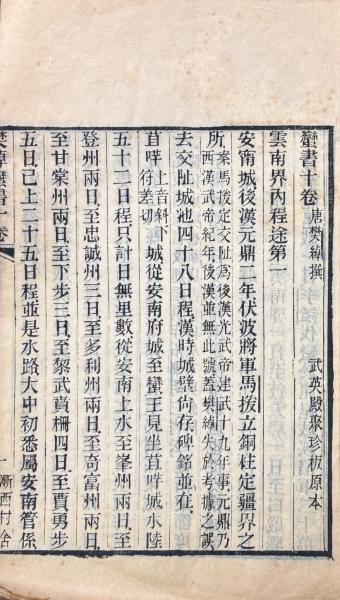 蠻書十卷 唐樊綽撰 武英殿聚珍板原本
雲南界內程途第一
安甯城後漢元鼎二年伏波將軍馬援立銅柱定疆界之
所 案馬援定交阯為後漢光武帝建武十九年事元鼎乃
西漢武帝紀年後漢並無此號蓋樊綽失於考據之誤
去交阯城池四十八日程漢時城壁尚存碑銘並在
苴咩 上音斜下
符差切 城從安南府城至蠻王見坐苴咩城水陸
五十二日程只計日無里數從安南上水至峯州兩日至
登州兩日至忠誠州三日至多利州兩日至奇富州兩日
至甘棠州兩日至下步三日至黎武賁柵四日至賈勇步
五日已上二十五日程並是水路大中初悉屬安南管係
樊綽蠻書十卷 一 漸西村舍